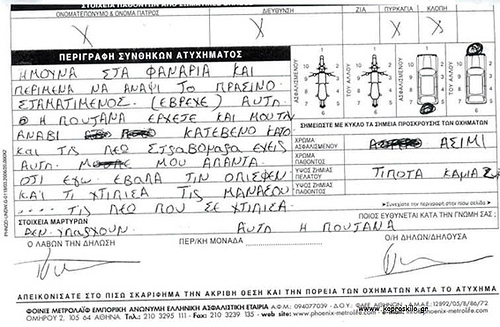 ΣΤΟΙΧΕΙΑ ΠΑΘΟΝΤΩΝ ΑΠΟ
ΟΝΟΜΑΤΕΠΩΝΥΜΟ & ΟΝΟΜΑ ΠΑΤΡΟΣ ΔΙΕΥΘΥΝΣΗ ΖΙΑ ΚΛΟΠΗ
X X X X
ΠΕΡΙΓΡΑΦΗ ΣΥΝΘΗΚΩΝ ΑΤΥΧΗΜΑΤΟΣ
ΗΜΟΥΝΑ ΣΤΑ ΦΑΝΑΡΙΑ ΚΑΙ
ΠΕΡΙΜΕΝΑ ΝΑ ΑΝΑΨΙ ΤΟ ΠΡΑΣΙΝΟ
ΣΤΑΜΑΤΙΜΕΝΟΣ (ΕΒΡΕΧΕ) ΑΥΤΗ
Η ΠΟΥΤΑΝΑ ΕΡΧΕΤΕ ΚΑΙ ΜΟΥ ΤΗΝ
ΑΝΑΒΙ ΚΑΤΕΒΕΝΟ ΚΑΤΟ
ΚΑΙ ΤΙΣ ΛΕΟ ΣΤΡΑΒΟΜΑΡΑ ΕΧΕΙΣ
ΑΥΤΗ ΜΟΥ ΑΠΑΝΤΑ
ΟΤΙ ΕΓΩ ΕΒΑΛΑ ΤΗΝ ΟΠΙΣΘΕΝ
ΚΑΙ ΤΙ ΧΤΙΠΙΣΑ ΤΙΣ ΜΑΝΑΣΟΥ
.... ΤΙΣ ΛΕΟ ΠΟΥ ΣΕ ΧΤΙΠΙΣΑ
ΑΣΦΑΛΙΣΜΕΝΟΥ
ΤΟΥ ΑΛΛΟΥ
ΑΣΦΑΛΙΣΜΕΝΟΥ
ΤΟΥ ΑΛΛΟΥ
ΣΗΜΕΙΩΣΤΕ ΜΕ ΚΥΚΛΟ ΤΑ ΣΗΜΕΙΑ ΠΡΟΣΚΡΟΥΣΗΣ ΤΩΝ ΟΧΗΜΑΤΩΝ
ΧΡΩΜΑ ΑΣΦΑΛΙΣΜΕΝΟΥ ΑΣΙΜΙ
ΧΡΩΜΑ ΠΑΘΟΝΤΟΣ
ΥΨΟΣ ΖΗΜΙΑΣ ΠΕΛΑΤΟΥ ΤΙΠΟΤΑ ΚΑΜΙΑ
ΥΨΟΣ ΖΗΜΙΑΣ ΠΑΘΟΝΤΟΣ
Συνεχίστε την περιγραφή στην πίσω σελίδα
ΣΤΟΙΧΕΙΑ ΜΑΡΤΥΡΩΝ ΠΟΙΟΣ ΕΥΘΥΝΕΤΑΙ ΚΑΤΑ ΤΗ ΓΝΩΜΗ ΣΑΣ :
ΔΕΝ ΥΠΑΡΧΟΥΝ ΑΥΤΗ Η ΠΟΥΤΑΝΑ
Ο ΛΑΒΩΝ ΤΗΝ ΔΗΛΩΣΗ ΠΕΡ/ΚΗ ΜΟΝΑΔΑ Ο/Η ΔΗΛΩΝ/ΔΗΛΟΥΣΑ
ΑΠΕΙΚΟΝΙΣΑΤΕ ΣΤΟ ΠΙΣΩ ΣΚΑΡΙΦΗΜΑ ΤΗΝ ΑΚΡΙΒΗ ΘΕΣΗ ΚΑΙ ΤΗΝ ΠΟΡΕΙΑ ΤΩΝ ΟΧΗΜΑΤΩΝ ΚΑΤΑ ΤΟ ΑΤΥΧΗΜΑ
ΦΟΙΝΙΞ ΜΕΤΡΟΛΑΪΦ ΕΜΠΟΡΙΚΗ ΑΝΩΝΥΜΗ ΕΛΛΗΝΙΚΗ ΑΣΦΑΛΙΣΤΙΚΗ ΕΤΑΙΡΙΑ Α.Φ.Μ.: 094077039 - Δ.Ο.Υ.: ΦΑΒΕ ΑΘΗΝΩΝ - ΑΡ.Μ.Α.Ε.: 12892/05/Β/86/72
ΟΜΗΡΟΥ 2, 105 64 ΑΘΗΝΑ - Τηλ.: 210 3295 111 - Fax: 210 3239 135 - web site: www.phoenix-metrolife.com
www.kopsokilo.gr